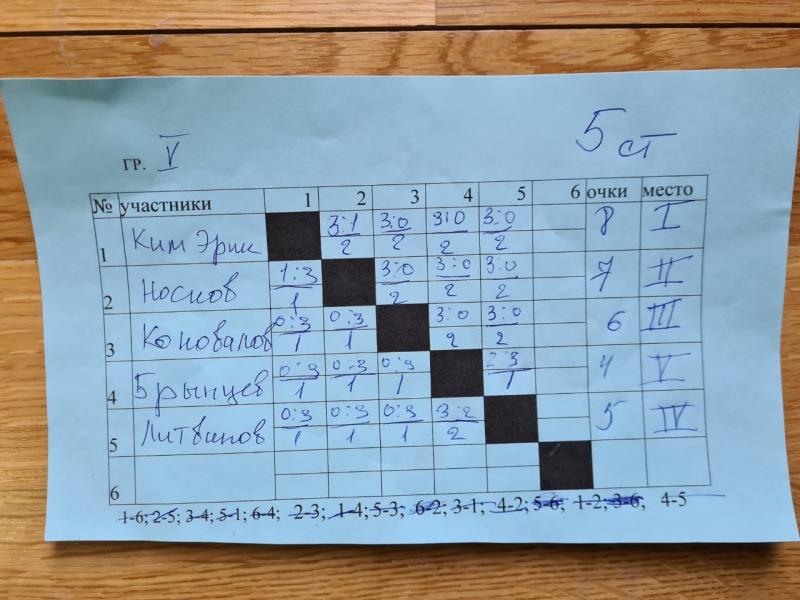 гр. V 5 ст
№ участники 1 2 3 4 5 6 очки место
1 Ким Эрик 3:1 3:0 3:0 3:0 8 I
2 2 2 2
2 Носков 1:3 3:0 3:0 3:0 7 II
1 2 2 2
3 Коновалов 0:3 0:3 3:0 3:0 6 III
1 1 2 2
4 Брынцев 0:3 0:3 0:3 2:3 4 V
1 1 1 1
5 Литвинов 0:3 0:3 0:3 3:2 5 IV
1 1 1 2
6
1-6; 2-5; 3-4; 5-1; 6-4; 2-3; 1-4; 5-3; 6-2; 3-1; 4-2; 5-6; 1-2; 3-6; 4-5